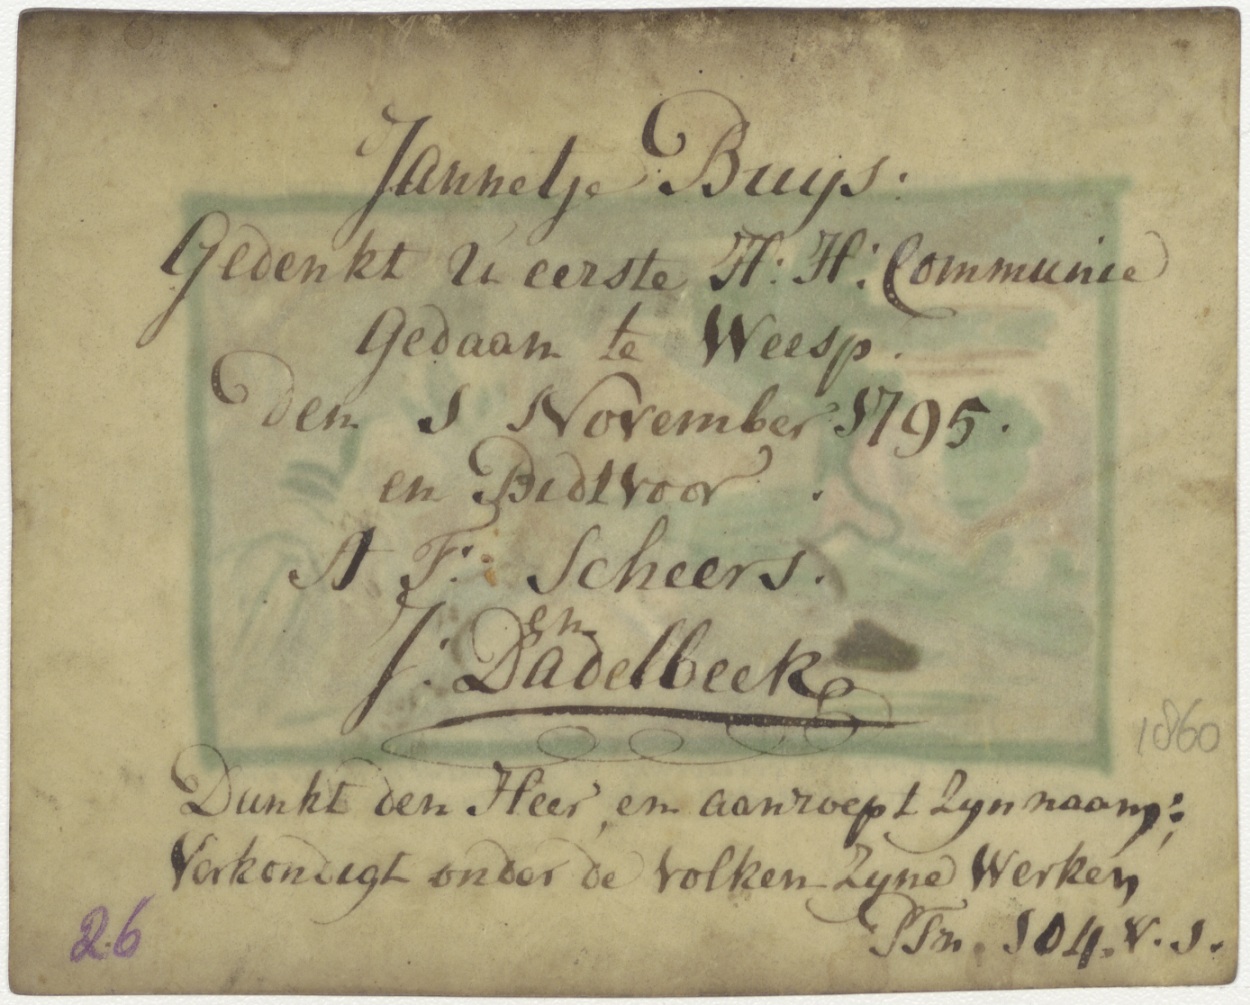 Jannetje Buys.
Gedenkt U eerste H: H: Communie
Gedaan te Weesp.
den 1 November 1795.
en Bidt voor.
A F: Scheers.
en
J: Dadelbeek
1860
Dankt den Heer, en aanroept Zyn naam;
Verkondigt onder de Volken Zyne Werken
Psm. 104. v. 1.
26